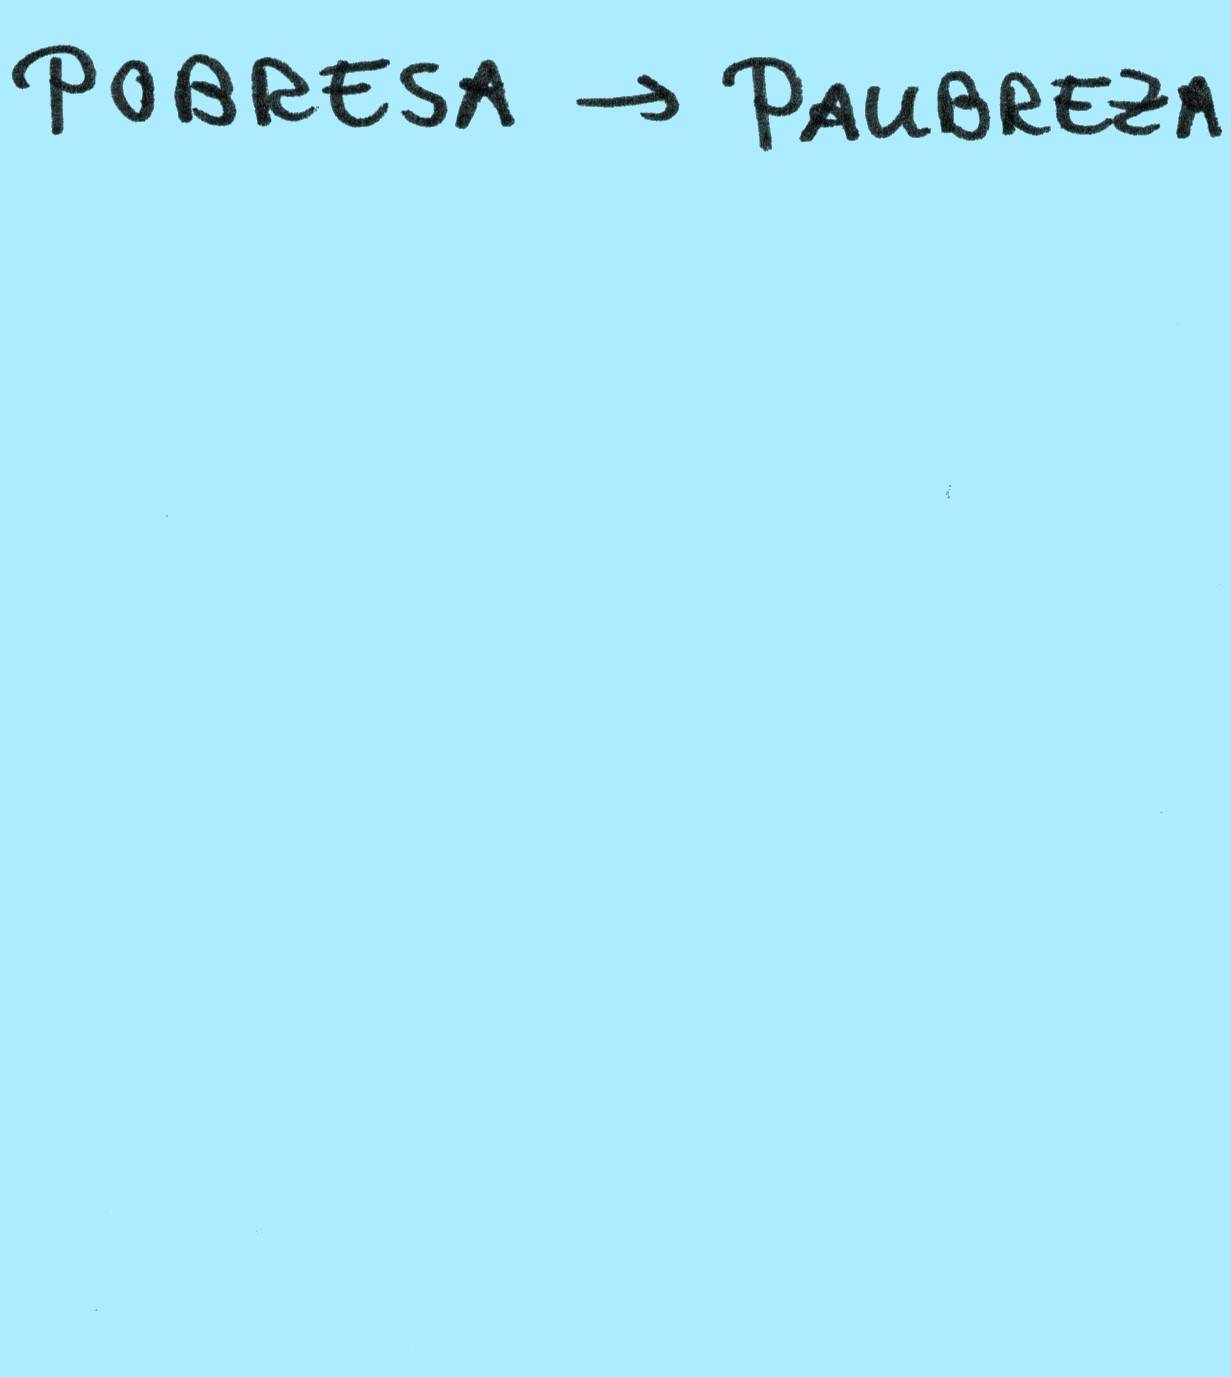 POBRESA → PAUBREZA